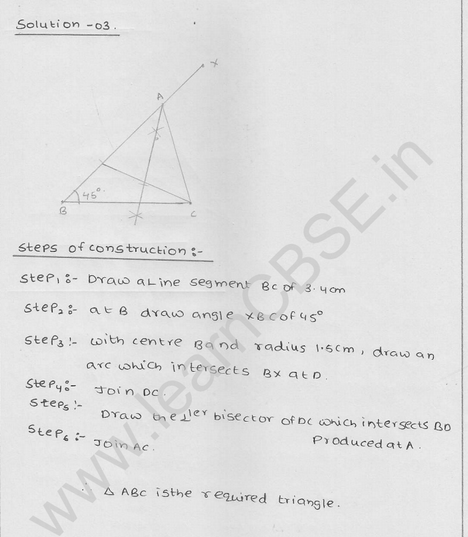 Solution -03.
X
A
45°
B
C
Steps of construction :-
Step1 :- Draw a Line segment BC of 3.4cm
Step2 :- at B draw angle XBC of 45°
Step3 :- with centre B and radius 1.5cm, draw an
arc which intersects BX at D.
Step4 :- Join DC.
Step5 :- Draw the ⊥ler bisector of DC which intersects BD
Produced at A.
Step6 :- Join AC.
∴ △ ABC is the required triangle.
www.learnCBSE.in